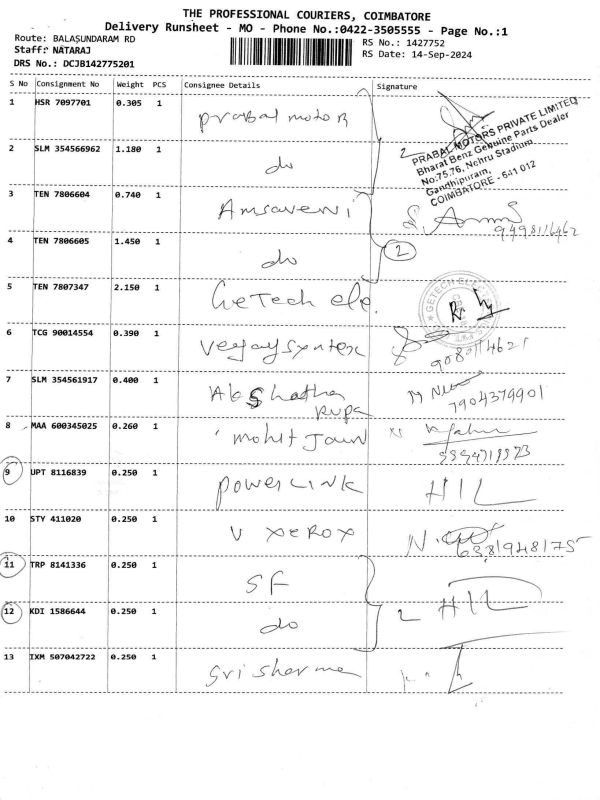 THE PROFESSIONAL COURIERS, COIMBATORE
Delivery Runsheet - MO - Phone No.:0422-3505555 - Page No.:1
Route: BALASUNDARAM RD
Staff: NATARAJ
DRS No.: DCJB142775201
RS No.: 1427752
RS Date: 14-Sep-2024
S No Consignment No Weight PCS Consignee Details Signature
1 HSR 7097701 0.305 1 prabal motor
2
PRABAL MOTORS PRIVATE LIMITED
Bharat Benz Genuine Parts Dealer
No:75,76, Nehru Stadium,
Gandhipuram,
COIMBATORE - 641 012
2 SLM 354566962 1.180 1 do
3 TEN 7806604 0.740 1 Amsaveni
9498116462
4 TEN 7806605 1.450 1 do 2
5 TEN 7807347 2.150 1 GeTech ele.
GETECH
6 TCG 90014554 0.390 1 Veejaysyntex
7 SLM 354561917 0.400 1 Akshatha
Rupa
7904379901
8 MAA 600345025 0.260 1 mohit Jain
9 UPT 8116839 0.250 1 power Link HIL
10 STY 411020 0.250 1 V XEROX
N.
6381948175
11 TRP 8141336 0.250 1 SF
2 HIL
12 KDI 1586644 0.250 1 do
13 IXM 507042722 0.250 1 Sri Sharme